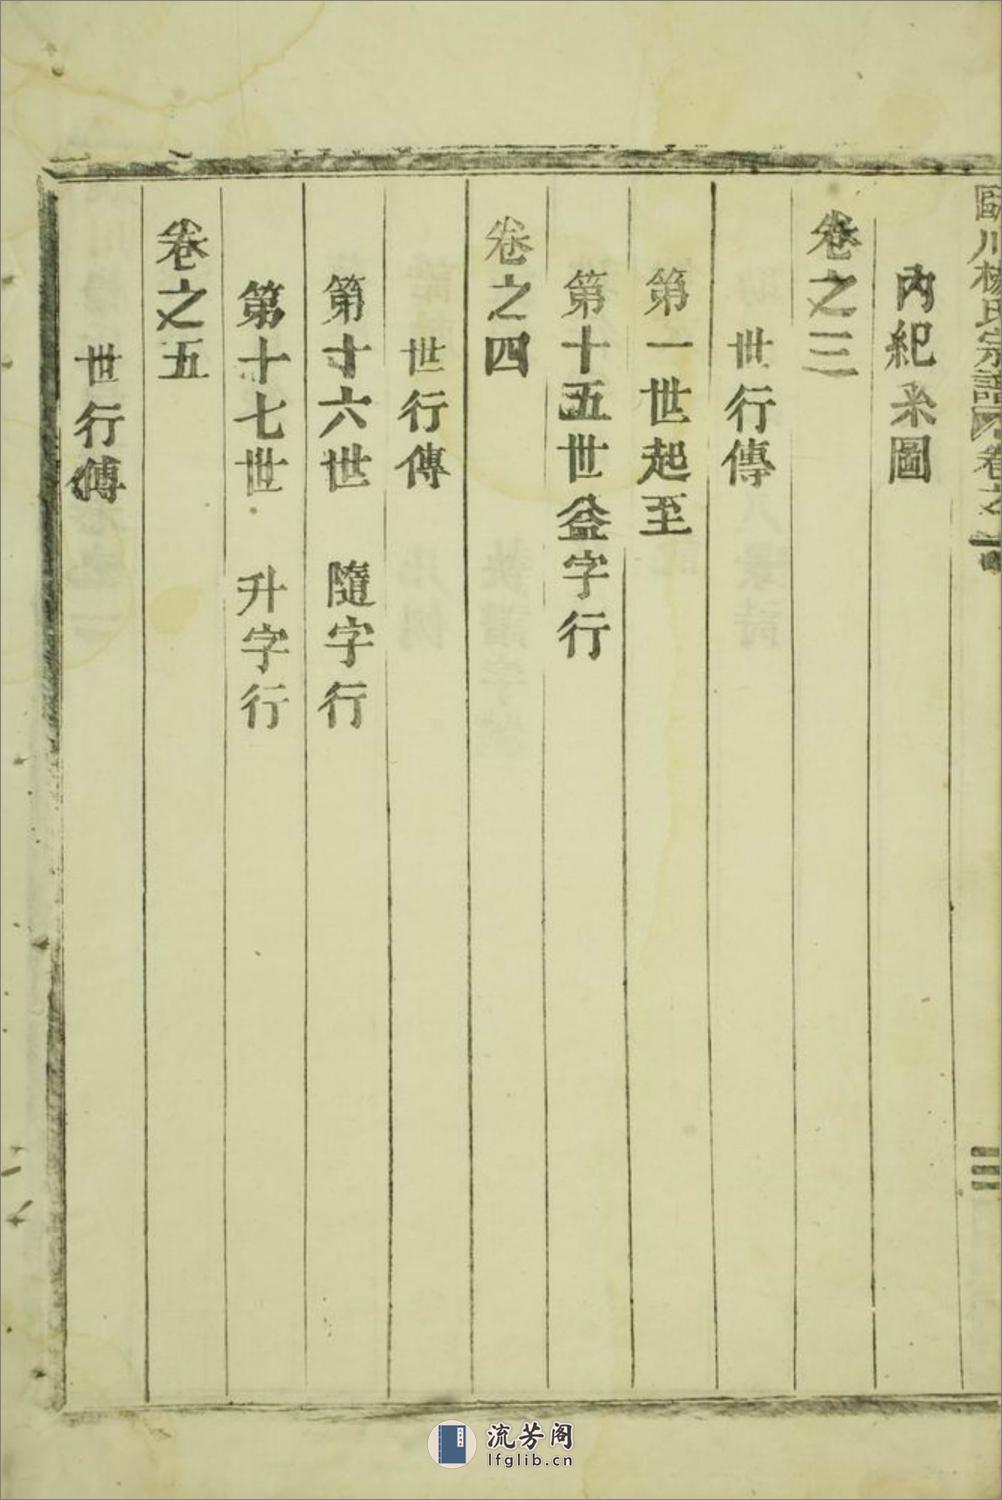 川楊氏宗譜 卷之
三
內紀系圖
卷之三
世行傳
第一世起至
第十五世益字行
卷之四
世行傳
第十六世 隨字行
第十七世 升字行
卷之五
世行傳
流芳阁
lfglib.cn